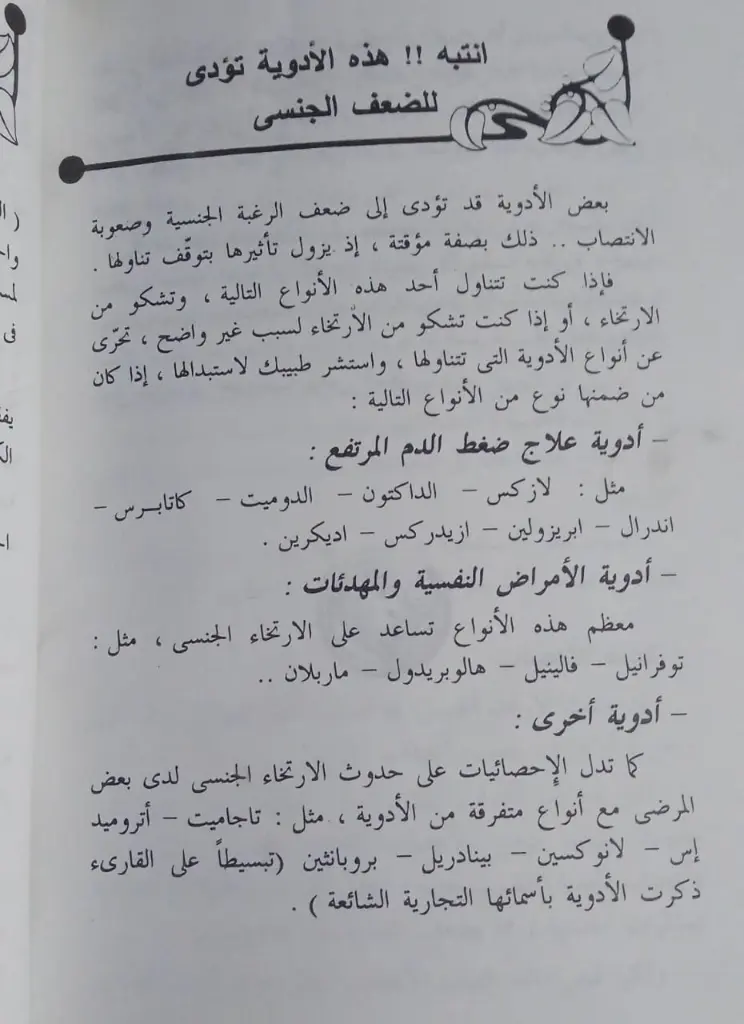 انتبه !! هذه الأدوية تؤدى
للضعف الجنسى
بعض الأدوية قد تؤدى إلى ضعف الرغبة الجنسية وصعوبة
الانتصاب .. ذلك بصفة مؤقتة ، إذ يزول تأثيرها بتوقّف تناولها .
فإذا كنت تتناول أحد هذه الأنواع التالية ، وتشكو من
الارتخاء ، أو إذا كنت تشكو من الأرتخاء لسبب غير واضح ، تحرّى
عن أنواع الأدوية التى تتناولها ، واستشر طبيبك لاستبدالها ، إذا كان
من ضمنها نوع من الأنواع التالية :
– أدوية علاج ضغط الدم المرتفع :
مثل : لازكس – الداكتون – الدوميت – كاتابـرس –
اندرال – ابريزولين – ازيدركس – اديكرين .
– أدوية الأمراض النفسية والمهدئات :
معظم هذه الأنواع تساعد على الارتخاء الجنسى ، مثل :
توفرانيل – فالينيل – هالوبريدول – ماربلان ..
– أدوية أخرى :
كما تدل الإحصائيات على حدوث الارتخاء الجنسى لدى بعض
المرضى مع أنواع متفرقة من الأدوية ، مثل : تاجاميت – أتروميد
إس – لانوكسين – بينادريل – بروبانثين (تبسيطاً على القارىء
ذكرت الأدوية بأسمائها التجارية الشائعة ) .